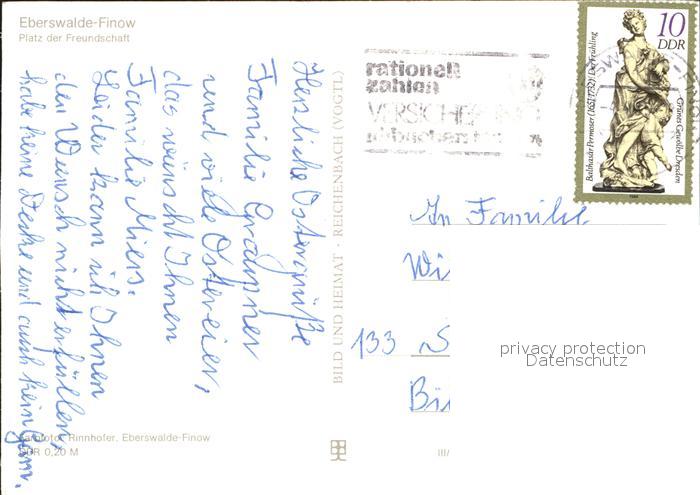 Eberswalde-Finow
Platz der Freundschaft
Herzliche Ostergrüße
Familie
und viele Ostereier,
das wünscht Ihnen
Familie Miers.
Leider kann ich Ihnen
den Wunsch nicht erfüllen,
habe keine Decke und auch kein Garn.
rationell
zahlen
VERSICHERUNG
BILD UND HEIMAT · REICHENBACH (VOGTL)
10
DDR
Balthasar Permoser (1651-1732) Der Frühling
Grünes Gewölbe Dresden
1984
An Familie
Wi
133 S
privacy protection
Datenschutz
Farbfoto: Rinnhofer, Eberswalde-Finow
0,20 M
III/